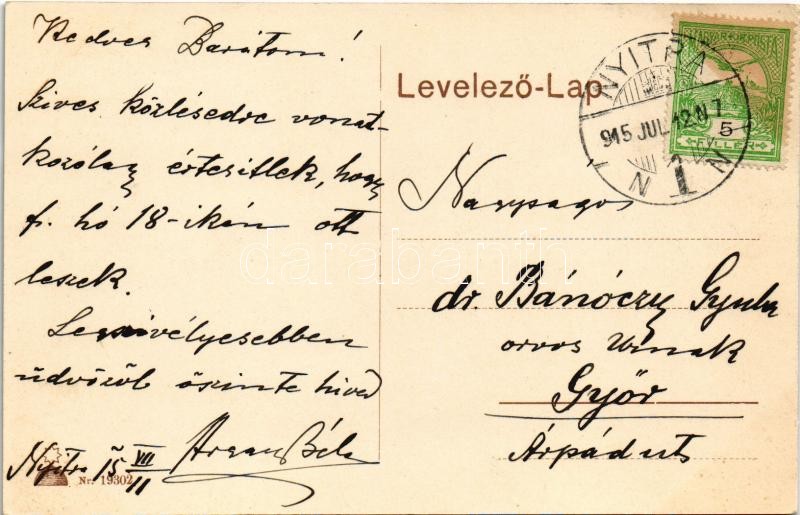 Kedves Barátom!
Szives közlésedre vonat-
kozólag értesitlek, hogy
f. hó 18-ikán ott
leszek.
Leszivélyesebben
üdvözöl őszinte hived
Béla
Nyitra 15 VII/11
Nr. 19302
Levelező-Lap
NYITRA
915 JUL. 12. N 7
MAGYAR KIR. POSTA
5
FILLÉR
Nagyságos
dr. Bánóczy Gyula
orvos Urnak
Győr
Árpád ut
darabanth